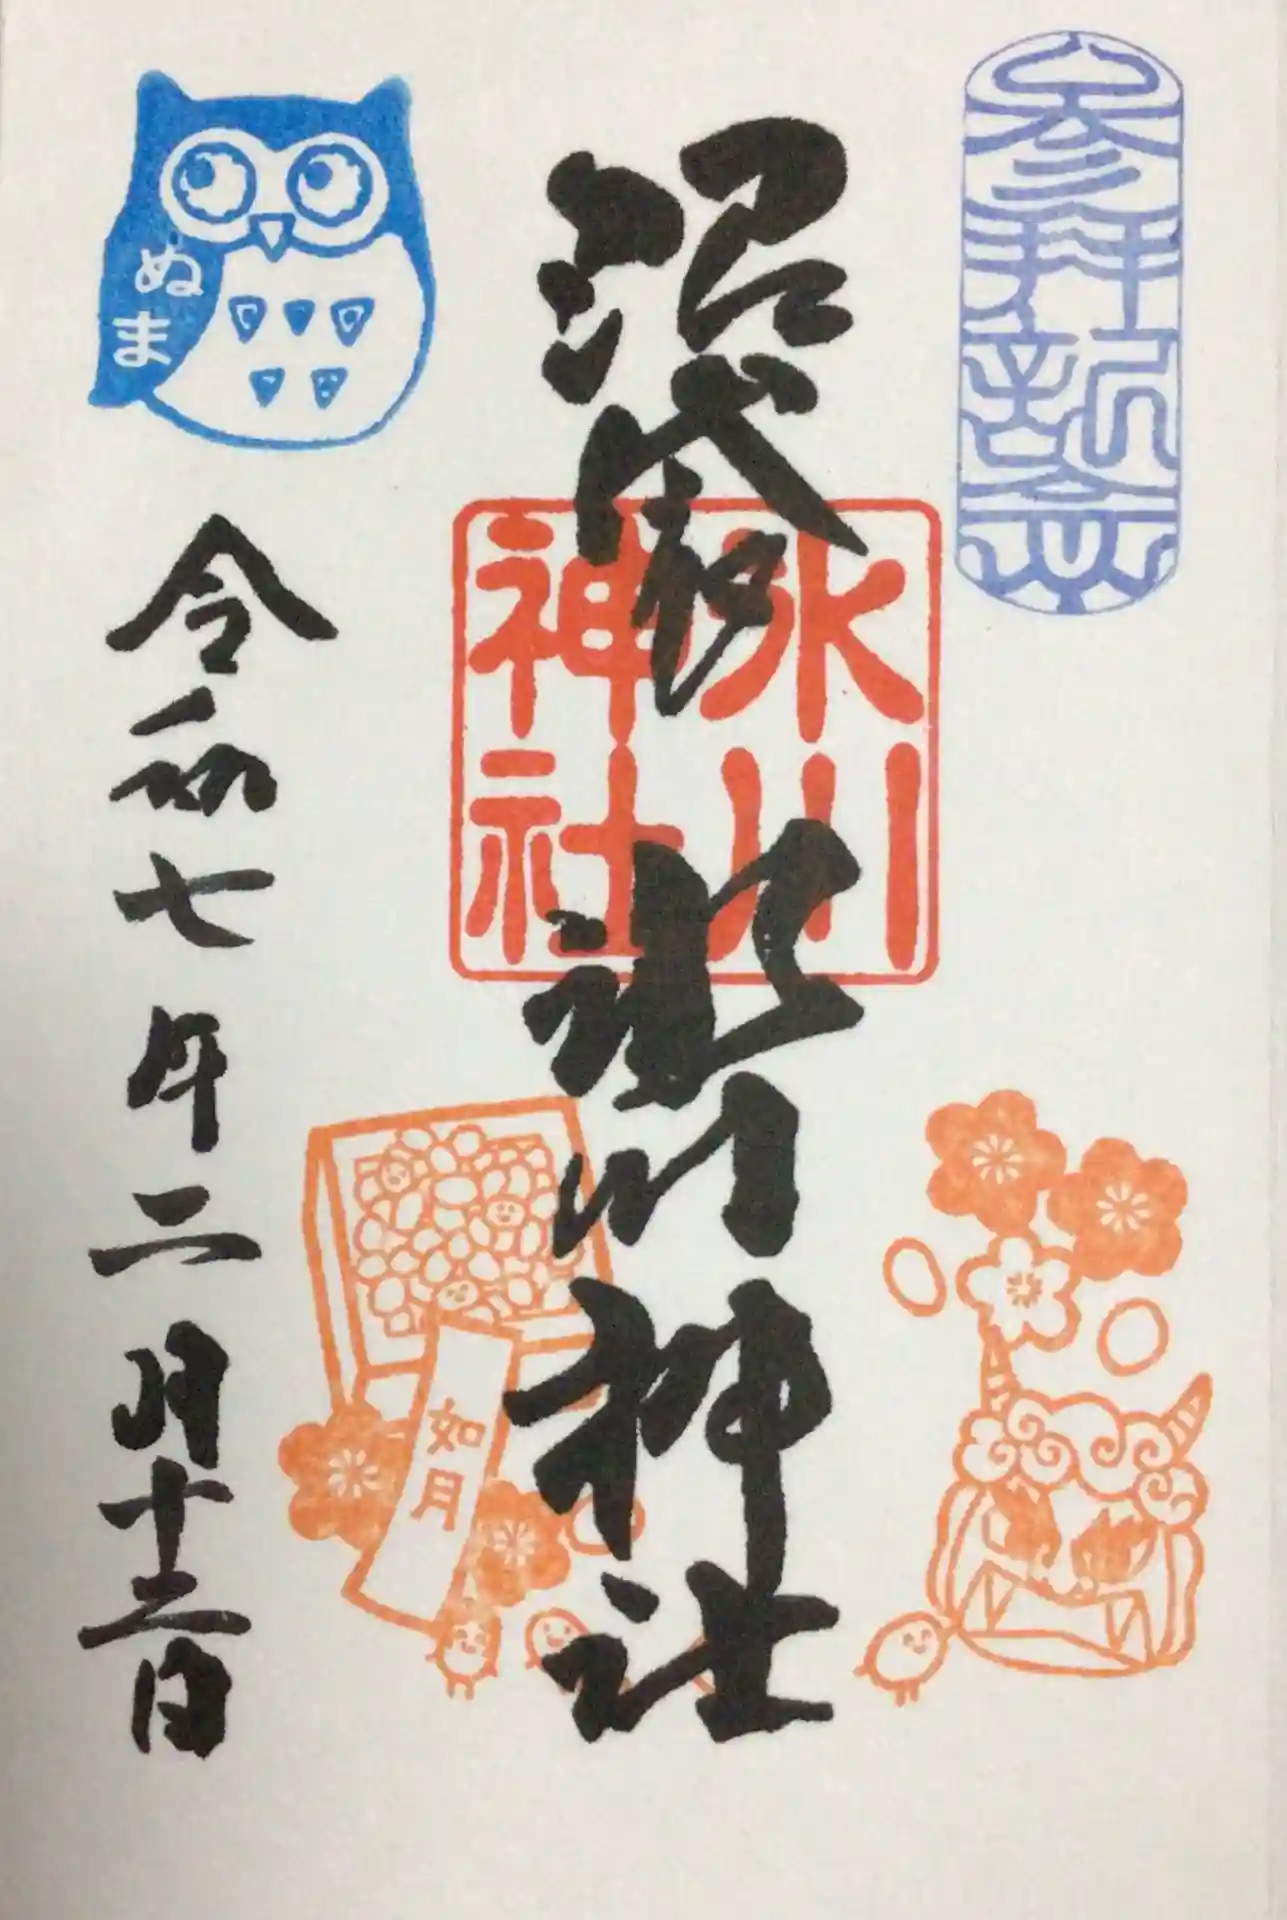 参拝記念
沼袋
氷川神社
氷川
神社
ぬま
令和七年二月十二日
如月